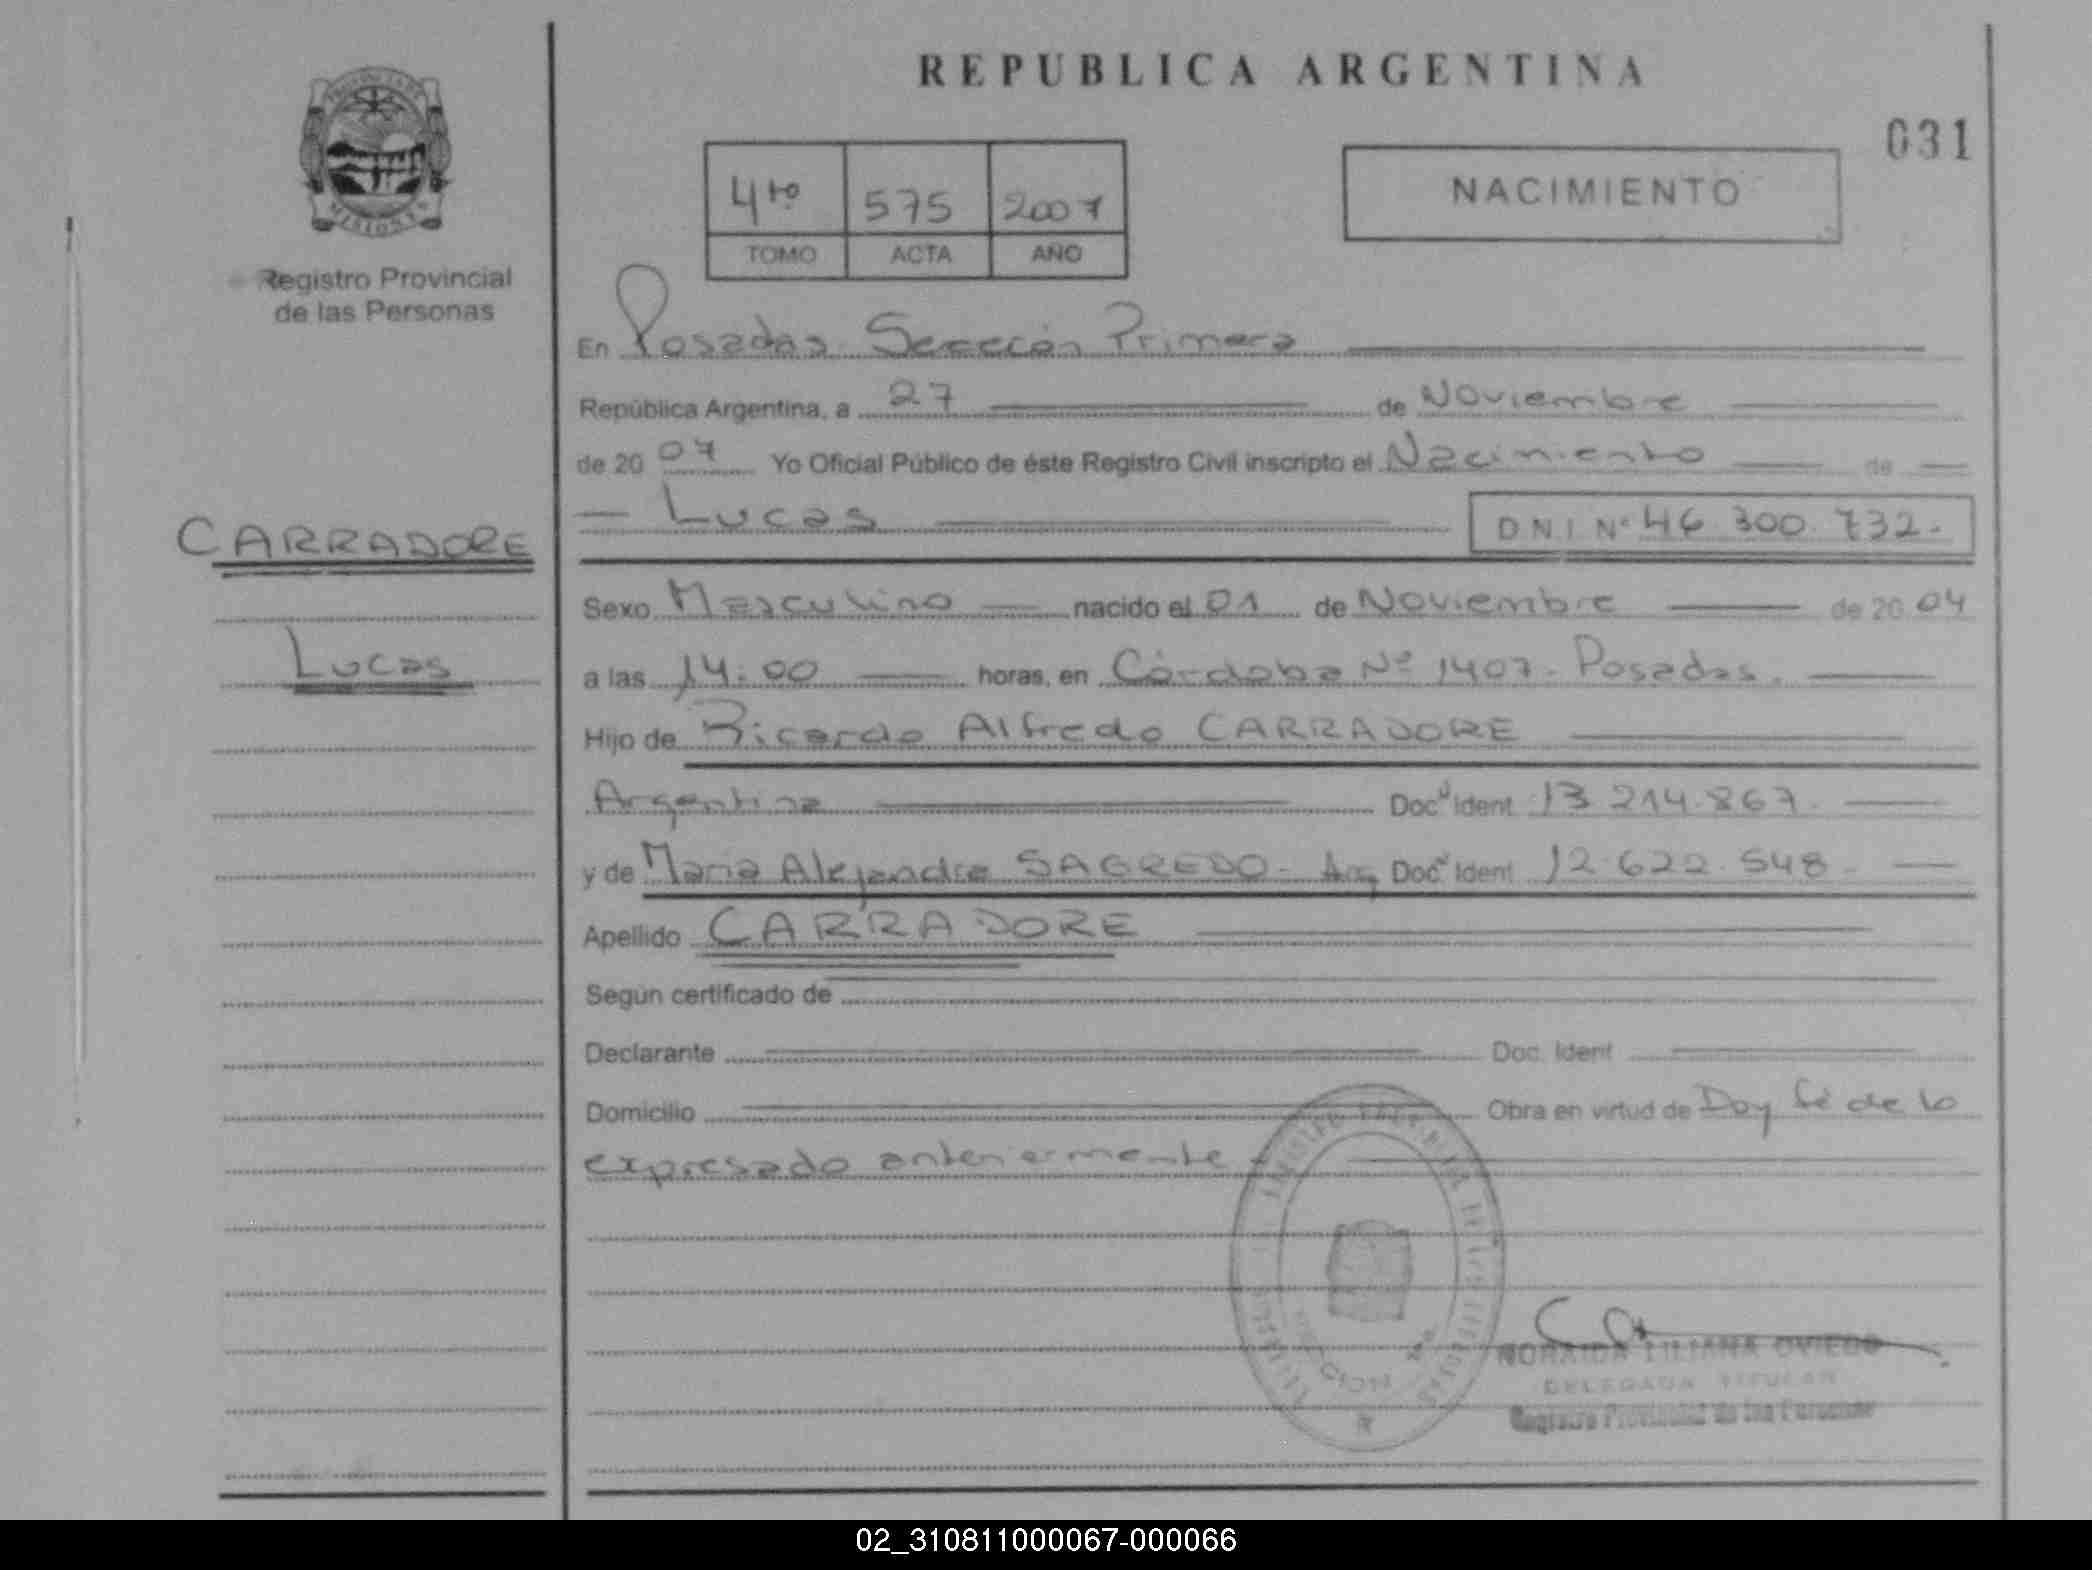 REPUBLICA ARGENTINA
031
4to 575 2007
TOMO ACTA AÑO
NACIMIENTO
MISIONES
Registro Provincial
de las Personas
En Posadas Sección Primera
República Argentina, a 27 de Noviembre
de 20 07 Yo Oficial Público de éste Registro Civil inscripto el Nacimiento de
Lucas D N I Nº 46 300 732.
CARRADORE
Lucas
Sexo Masculino nacido el 01 de Noviembre de 20 04
a las 14:00 horas, en Córdoba Nº 1407. Posadas.
Hijo de Ricardo Alfredo CARRADORE
Argentina Doc Ident 13 214.867.
y de Maria Alejandra SAGREDO - Arg Doc Ident 12.622.548
Apellido CARRADORE
Según certificado de
Declarante Doc. Ident
Domicilio Obra en virtud de Doy fé de lo
expresado anteriormente
LILIANA OVIEDO
DELEGADA TITULAR
Registro Provincial de las Personas
02_310811000067-000066